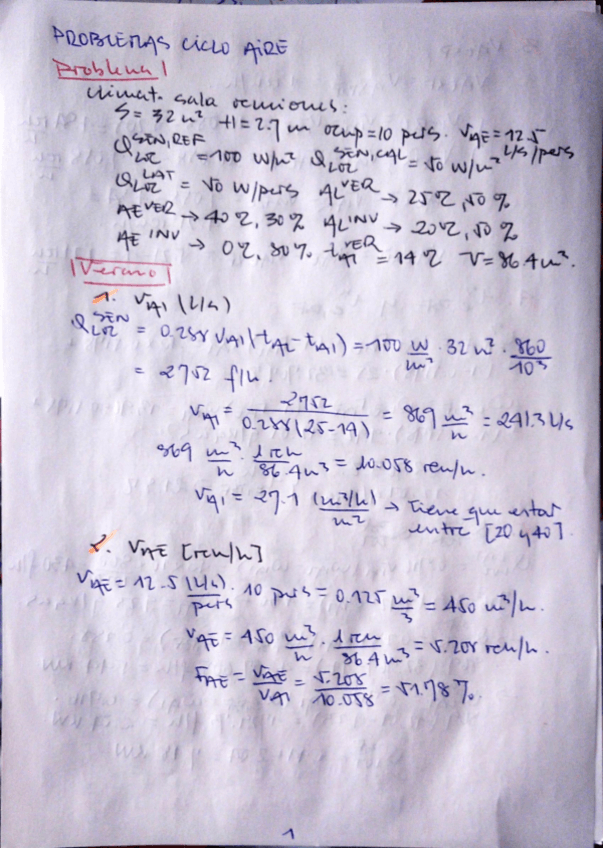 PROBLEMAS CICLO AIRE
Problema 1
climat. sala reuniones:
S = 32 m² H = 2.7 m ocup = 10 pers. V_AE = 12.5 L/s/pers
Q_LOC^SEN,REF = 100 W/m² Q_LOC^SEN,CAL = 50 W/m²
Q_LOC^LAT = 50 W/pers AL^VER → 25 ℃, 50 %
AE^VER → 40 ℃, 30 % AL^INV → 20 ℃, 50 %
AE^INV → 0 ℃, 80 % t_AI^VER = 14 ℃ V = 86.4 m³.
Verano
1. V_AI (L/s)
Q_LOC^SEN = 0.288 V_AI (t_AL - t_AI) = 100 W/m² · 32 m² · 860/10³
= 2752 f/h.
V_AI = 2752 / 0.288 (25-14) = 869 m³/h = 241.3 L/s
869 m³/h · 1 ren / 86.4 m³ = 10.058 ren/h.
V_AI = 27.1 (m³/h)/m² → tiene que estar
entre [20 y 40].
2. V_AE [ren/h]
V_AE = 12.5 (L/s)/pers · 10 pers = 0.125 m³/s = 450 m³/h.
V_AE = 450 m³/h · 1 ren / 86.4 m³ = 5.208 ren/h.
F_AE = V_AE / V_AI = 5.208 / 10.058 = 51.78 %.
1